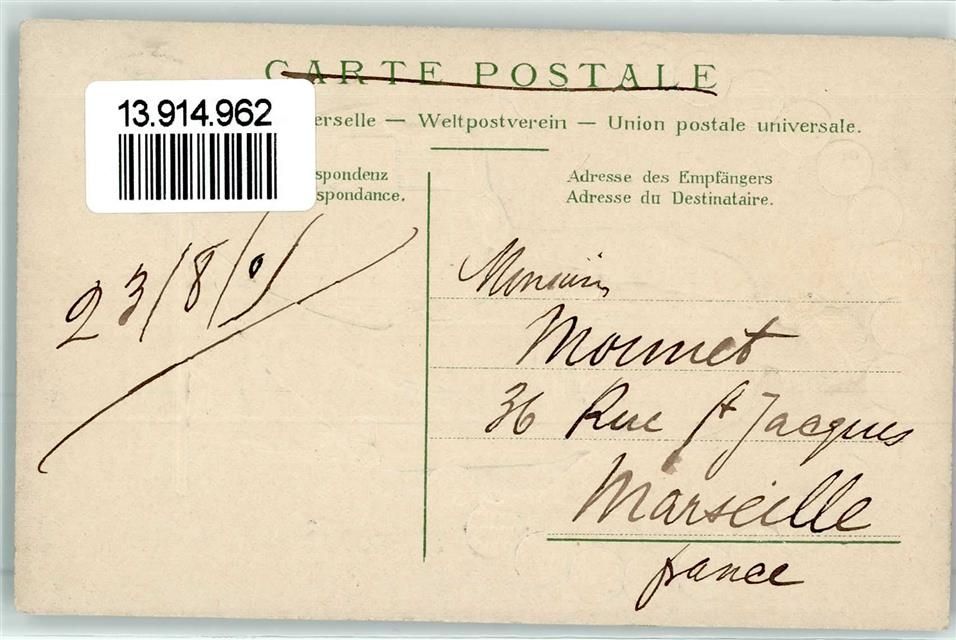 CARTE POSTALE
13.914.962
erselle — Weltpostverein — Union postale universale.
spondenz
spondance.
Adresse des Empfängers
Adresse du Destinataire.
23/8/01
Monsieur
Monnet
36 Rue St Jacques
Marseille
france